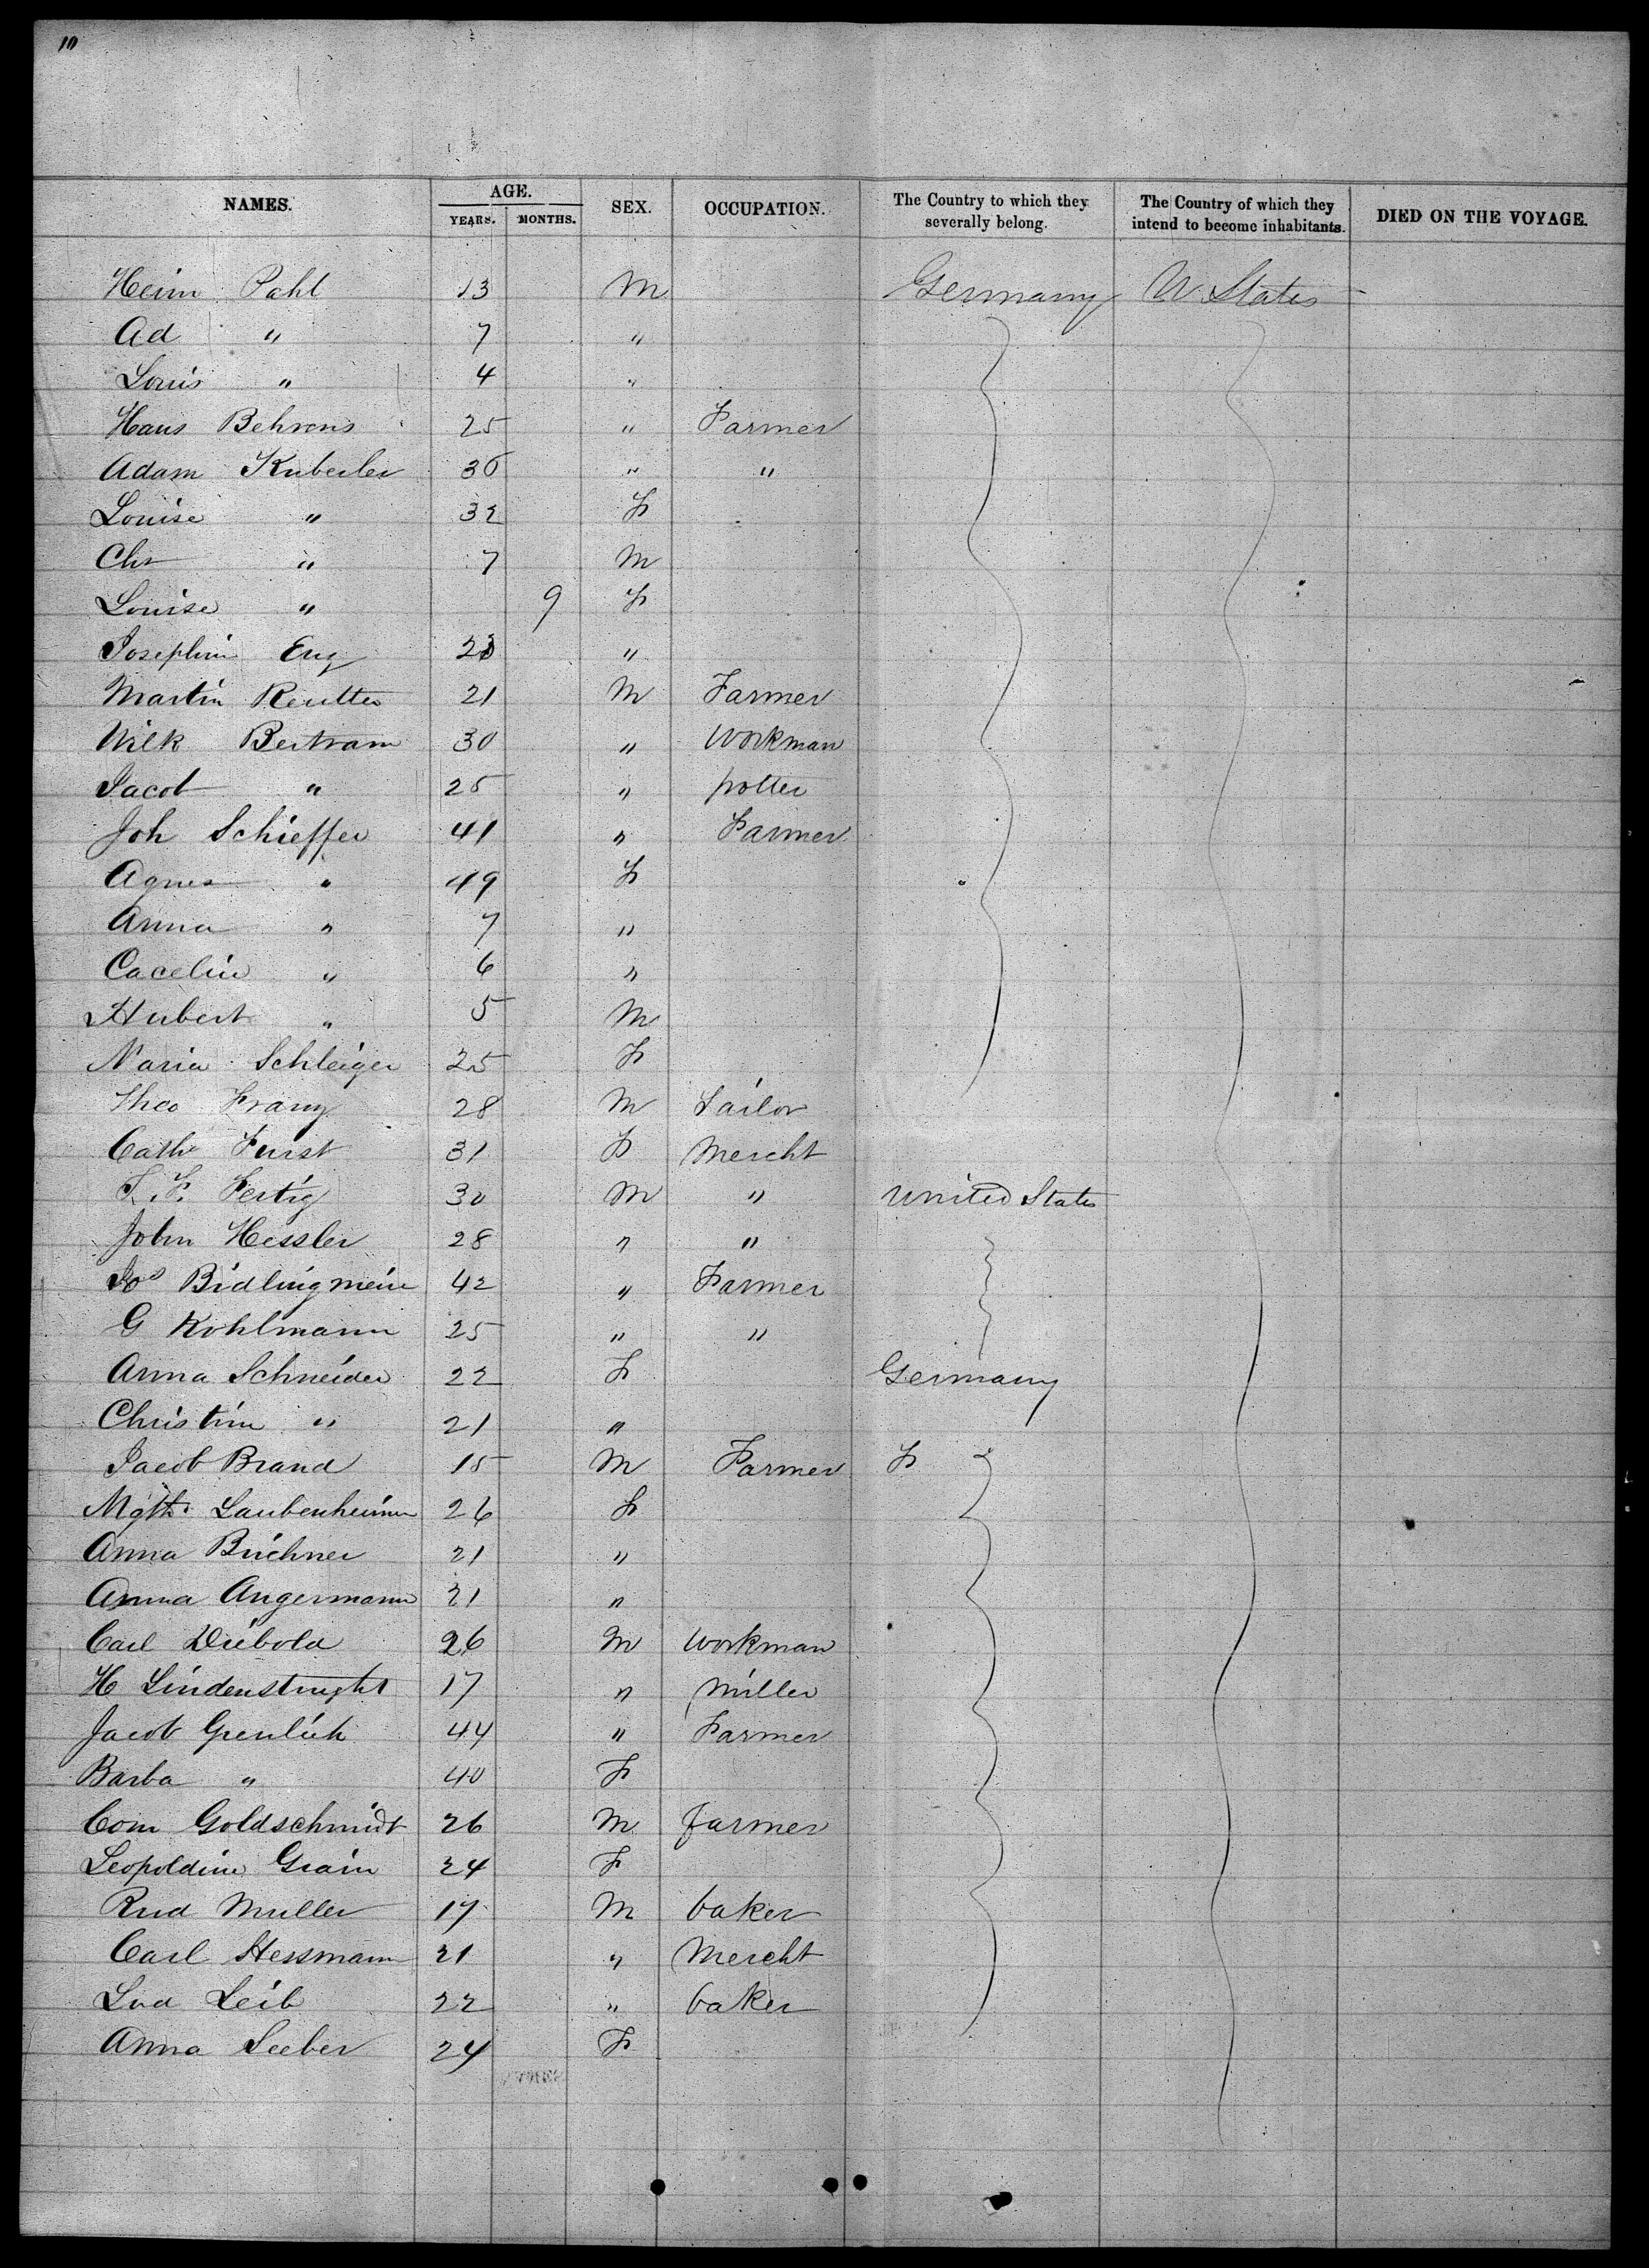 10
NAMES. AGE. SEX. OCCUPATION. The Country to which they severally belong. The Country of which they intend to become inhabitants. DIED ON THE VOYAGE.
YEARS. MONTHS.
Heinr Pahl 13 M Germany U. States
Ad " 7 "
Louis " 4 "
Hans Behrens 25 " Farmer
Adam Kuberler 36 " "
Louise " 32 F
Chr " 7 M
Louise " 9 F
Josephin Eng 23 "
Martin Reutter 21 M Farmer
Wilh Bertram 30 " Workman
Jacob " 25 " potter
Joh Schieffer 41 " Farmer
Agnes " 49 F
Anna " 7 "
Cacelin " 6 "
Hubert " 5 M
Maria Schleiger 25 F
Theo Franz 28 M Tailor
Cath Furst 31 F Mercht
F. Fertig 30 M " United States
John Hessler 28 " "
Jos Bidlingmeir 42 " Farmer
G Kohlmann 25 " "
Anna Schneider 22 F Germany
Christin " 21 "
Jacob Brand 15 M Farmer F
Mgth. Laubenheimer 26 F
Anna Büchner 21 "
Anna Angermann 21 "
Carl Diebold 26 M Workman
H 17 " Miller
Jacob Greulich 44 " Farmer
Barba " 40 F
Com Goldschmidt 26 M farmer
Leopoldine Grain 24 F
Rud Muller 17 M baker
Carl Hessmann 21 " Mercht
Lud Leib 22 " baker
Anna Seeber 24 F